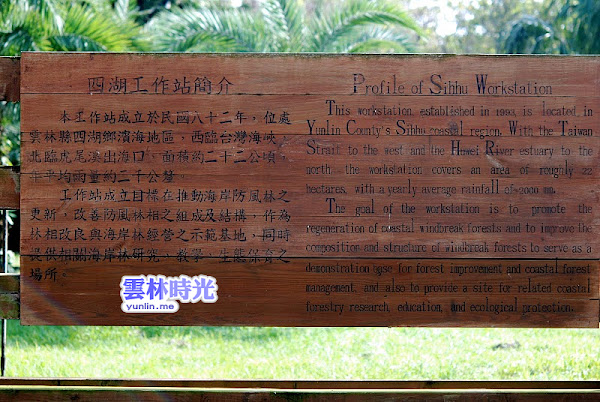 四湖工作站簡介
本工作站成立於民國八十二年，位處
雲林縣四湖鄉濱海地區，西臨台灣海峽，
北臨虎尾溪出海口，面積約二十二公頃，
年平均雨量約二千公釐。
工作站成立目標在推動海岸防風林之
更新，改善防風林相之組成及結構，作為
林相改良與海岸林經營之示範基地，同時
提供相關海岸林研究、教學、生態保育之
場所。
Profile of Sihhu Workstation
This workstation, established in 1993, is located in
Yunlin County's Sihhu coastal region. With the Taiwan
Strait to the west and the Huwei River estuary to the
north, the workstation covers an area of roughly 22
hectares, with a yearly average rainfall of 2000 mm.
The goal of the workstation is to promote the
regeneration of coastal windbreak forests and to improve the
composition and structure of windbreak forests to serve as a
demonstration base for forest improvement and coastal forest
management, and also to provide a site for related coastal
forestry research, education, and ecological protection.
雲林時光
yunlin.me